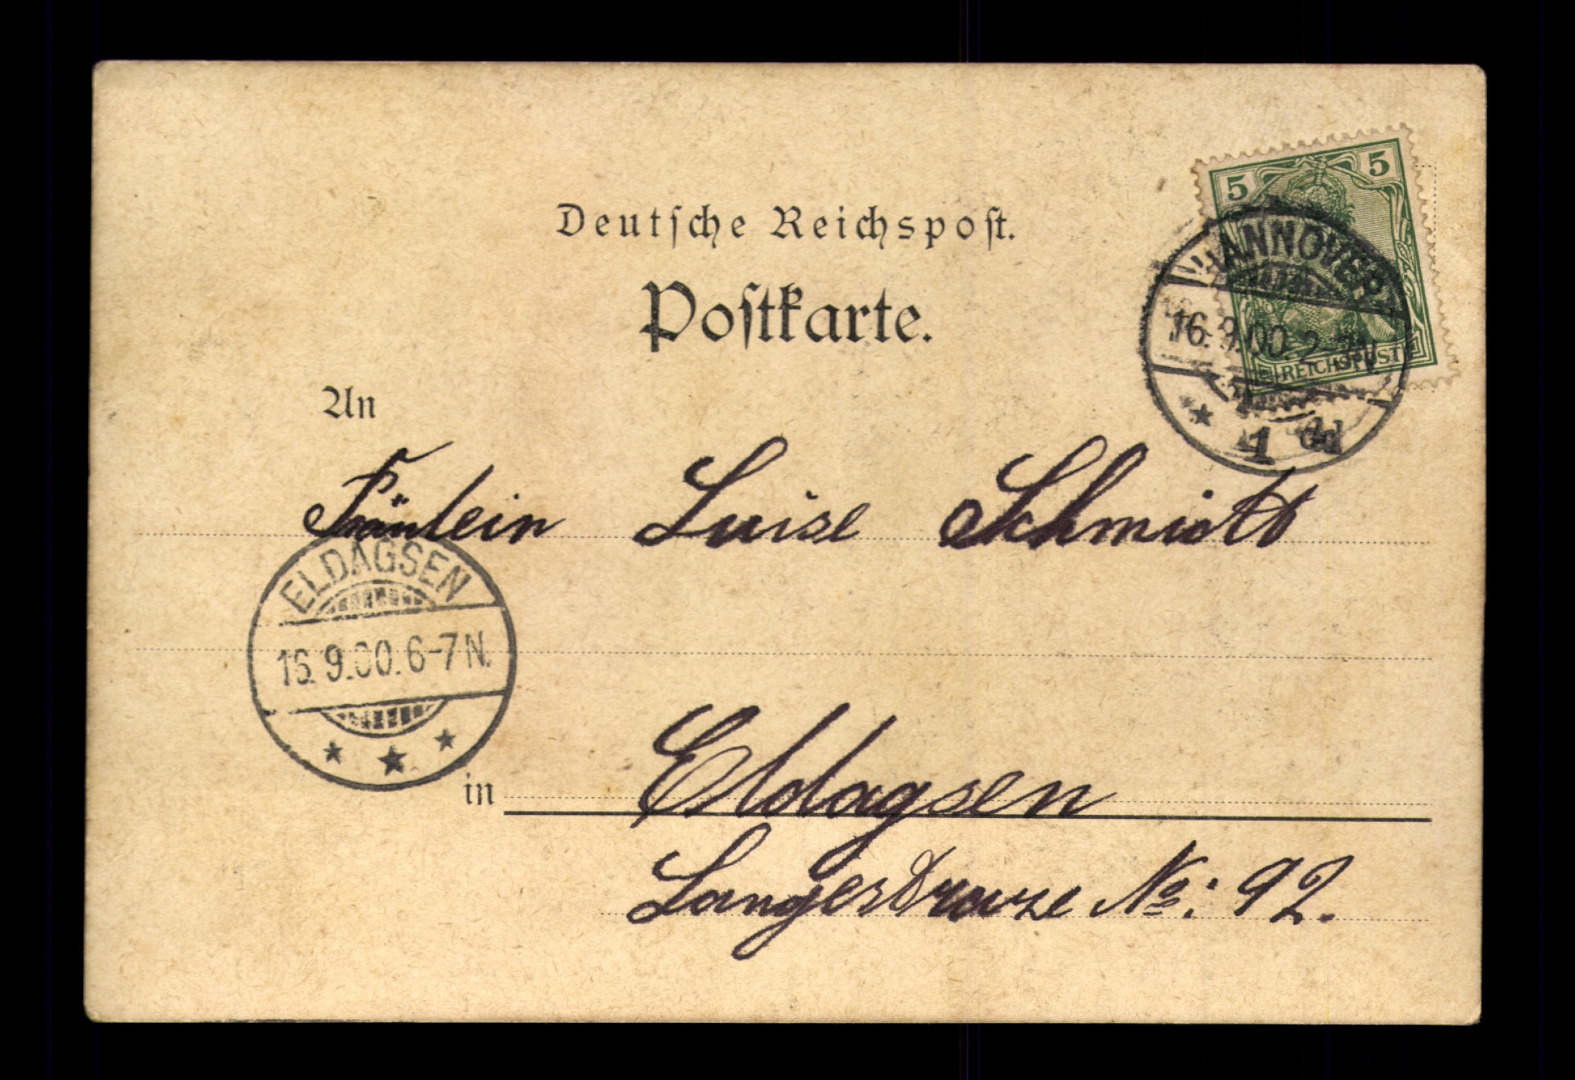 Deutsche Reichspost.
Postkarte.
5 5
REICHSPOST
HANNOVER
16.9.00. 2-3N.
* 1 *
An
Fräulein Luise Schmidt
ELDAGSEN
16.9.00.6-7N.
* * *
in Eldagsen
Langestrasze No: 92.